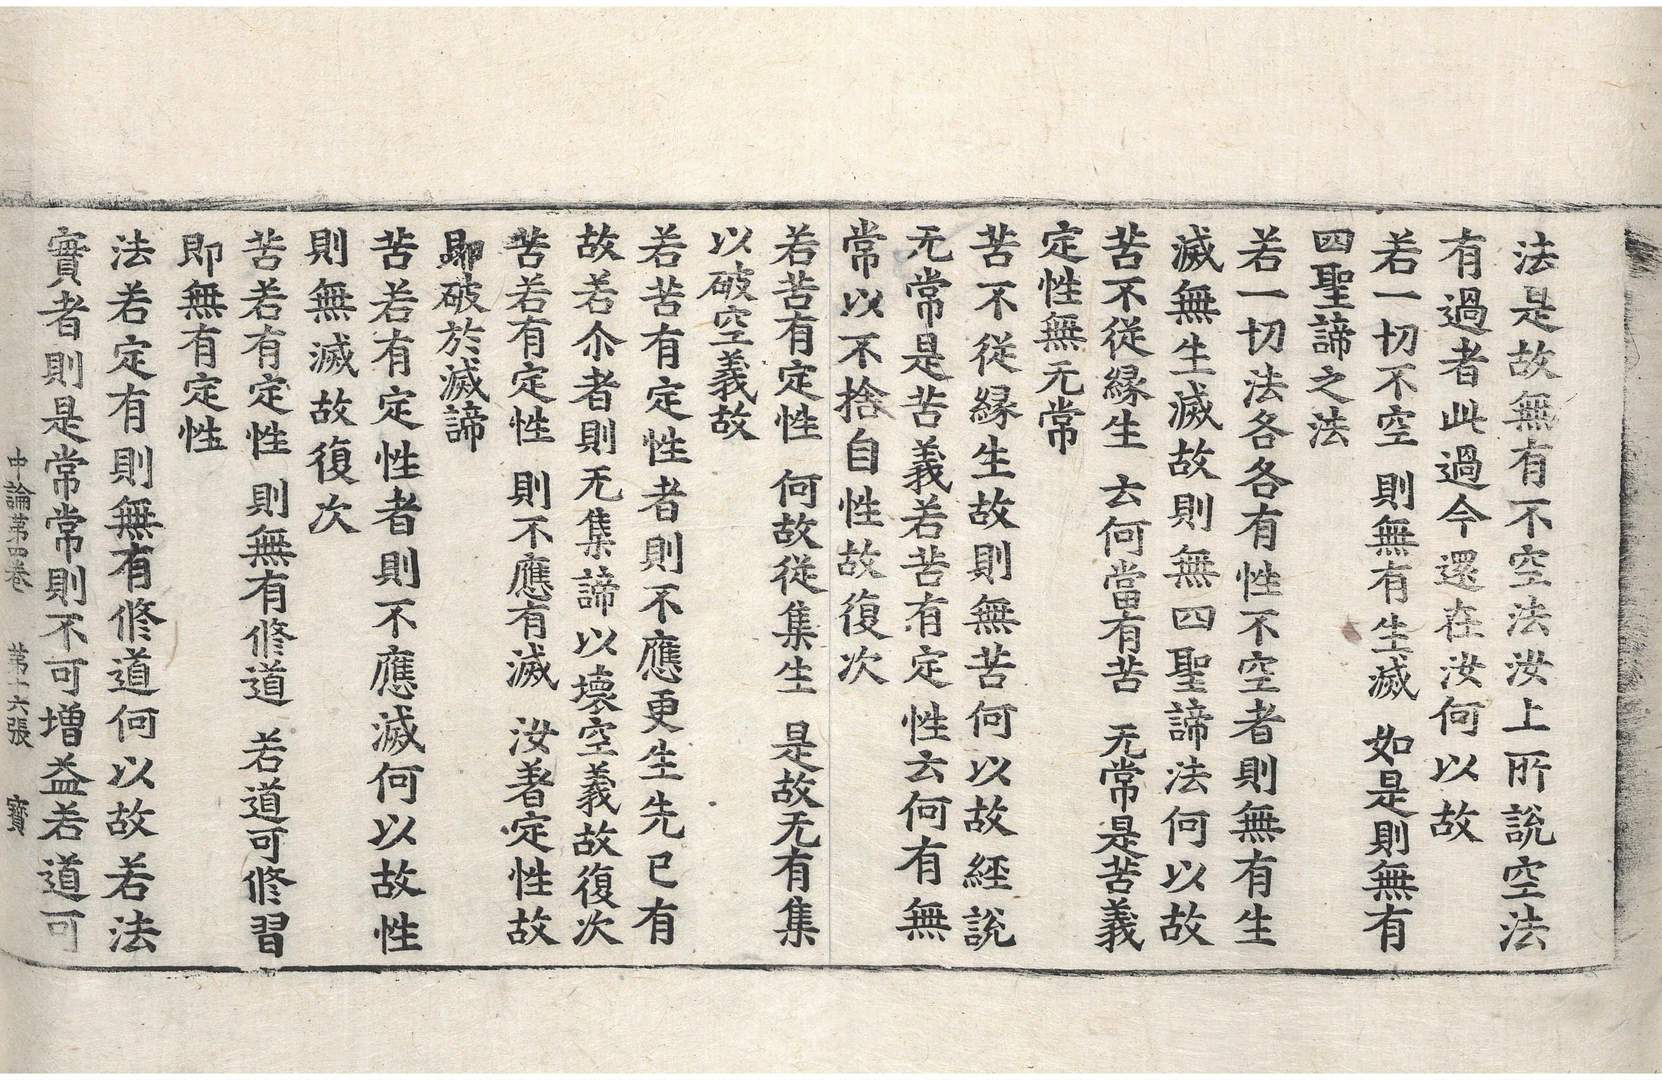 法是故無有不空法汝上所說空法
有過者此過今還在汝何以故
若一切不空 則無有生滅 如是則無有
四聖諦之法
若一切法各各有性不空者則無有生
滅無生滅故則無四聖諦法何以故
苦不從緣生 云何當有苦 无常是苦義
定性無无常
苦不從緣生故則無苦何以故經說
无常是苦義若苦有定性云何有無
常以不捨自性故復次
若苦有定性 何故從集生 是故无有集
以破空義故
若苦有定性者則不應更生先已有
故若尒者則无集諦以壞空義故復次
苦若有定性 則不應有滅 汝著定性故
即破於滅諦
苦若有定性者則不應滅何以故性
則無滅故復次
苦若有定性 則無有修道 若道可修習
即無有定性
法若定有則無有修道何以故若法
實者則是常常則不可增益若道可
中論第四卷 第十六張 寶